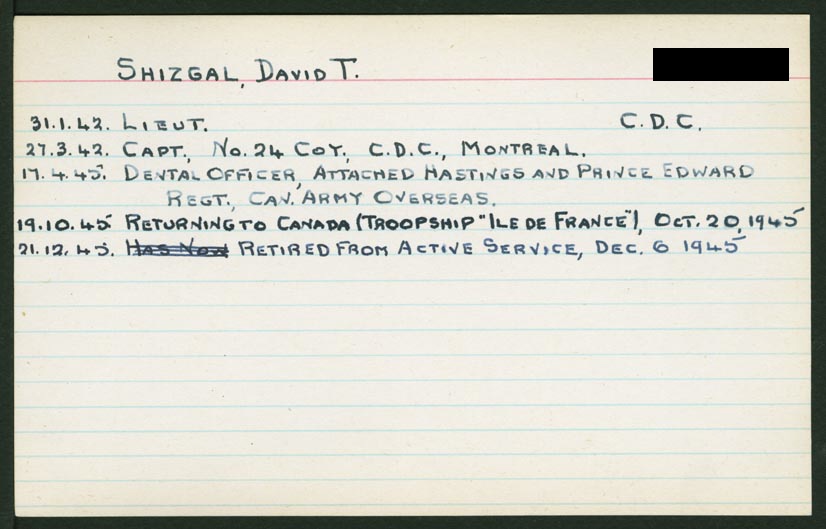 SHIZGAL, DAVID T.
31.1.42. LIEUT. C.D.C.
27.3.42. CAPT., No. 24 COY., C.D.C., MONTREAL.
17.4.45. DENTAL OFFICER, ATTACHED HASTINGS AND PRINCE EDWARD
REGT., CAN. ARMY OVERSEAS.
19.10.45 RETURNING TO CANADA (TROOPSHIP "ILE DE FRANCE"), OCT. 20, 1945
21.12.45. HAS NOW RETIRED FROM ACTIVE SERVICE, DEC. 6 1945